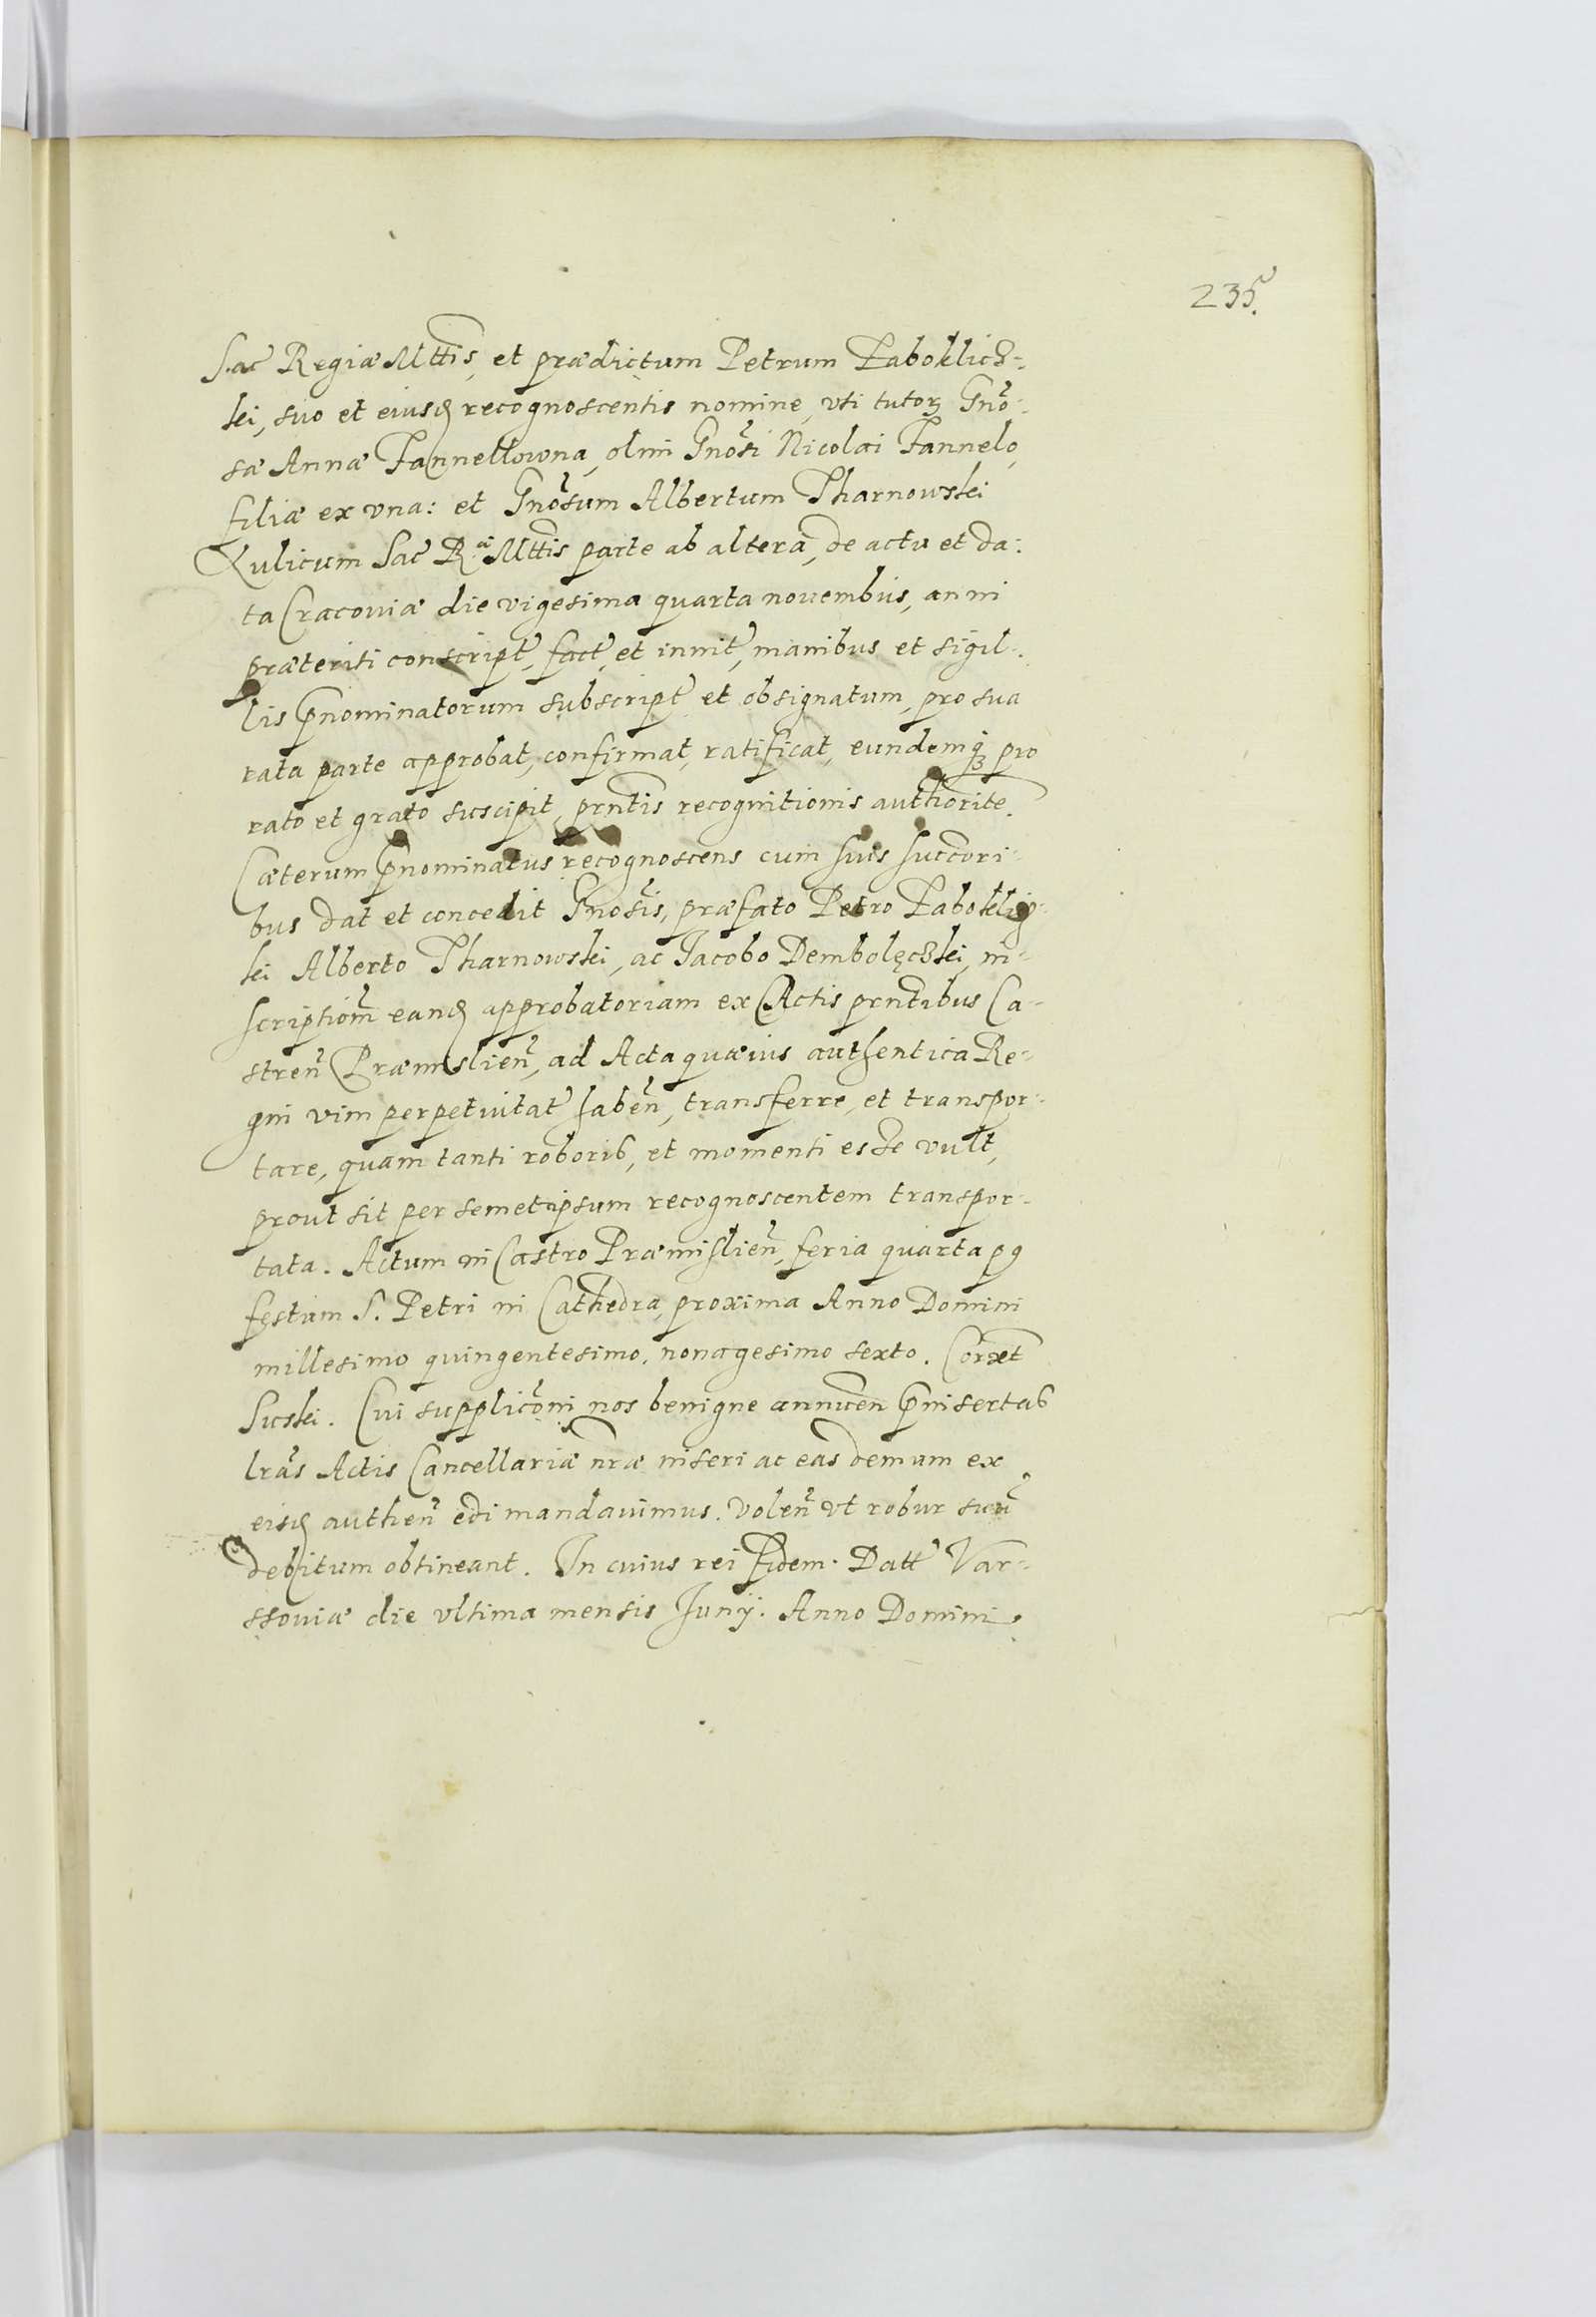 235.
Sac Regiæ Mttis, et prædictum Petrum Laboklicz-
ski, suo et eiusd recognoscentis nomine, vti tutor Gno-
sæ Annæ Fannellowna, olim Gnosi Nicolai Fannelo,
filiæ ex vna: et Gnosum Albertum Tharnowski
Aulicum Sac Ræ Mttis parte ab altera, de actu et da:
ta Cracouiæ die vigesima quarta nouembris, anni
præteriti conscript, fact, et innit, manibus et sigil-
lis pnominatorum subscript et obsignatum, pro sua
rata parte approbat, confirmat, ratificat, eundemq3 pro
rato et grato suscipit, prntis recognitionis authorite.
Cæterum pnominatus recognoscens cum suis succori-
bus dat et concedit Gnosis, præfato Petro Laboklicz-
ski Alberto Tharnowski, ac Jacobo Dembolęczki, in-
scriptiom eand approbatoriam ex Actis prntibus Ca-
stren Præmislien, ad Acta quæuis authentica Re-
gni vim perpetuitat haben, transferre, et transpor-
tare, quam tanti roboris, et momenti esse vult,
prout sit per semetipsum recognoscentem transpor-
tata. Actum in Castro Præmislien, feria quarta p9
festum S. Petri in Cathedra, proxima Anno Domini
millesimo quingentesimo, nonagesimo sexto. Corxet
Suski. Cui supplicōni nos benigne annuen pinsertas
lras Actis Cancellariæ nræ inseri ac eas demum ex
eisd authen edi mandauimus. Volen vt robur suū
debitum obtineant. In cuius rei fidem. Datt Var-
ssouiæ die vltima mensis Junij. Anno Domini